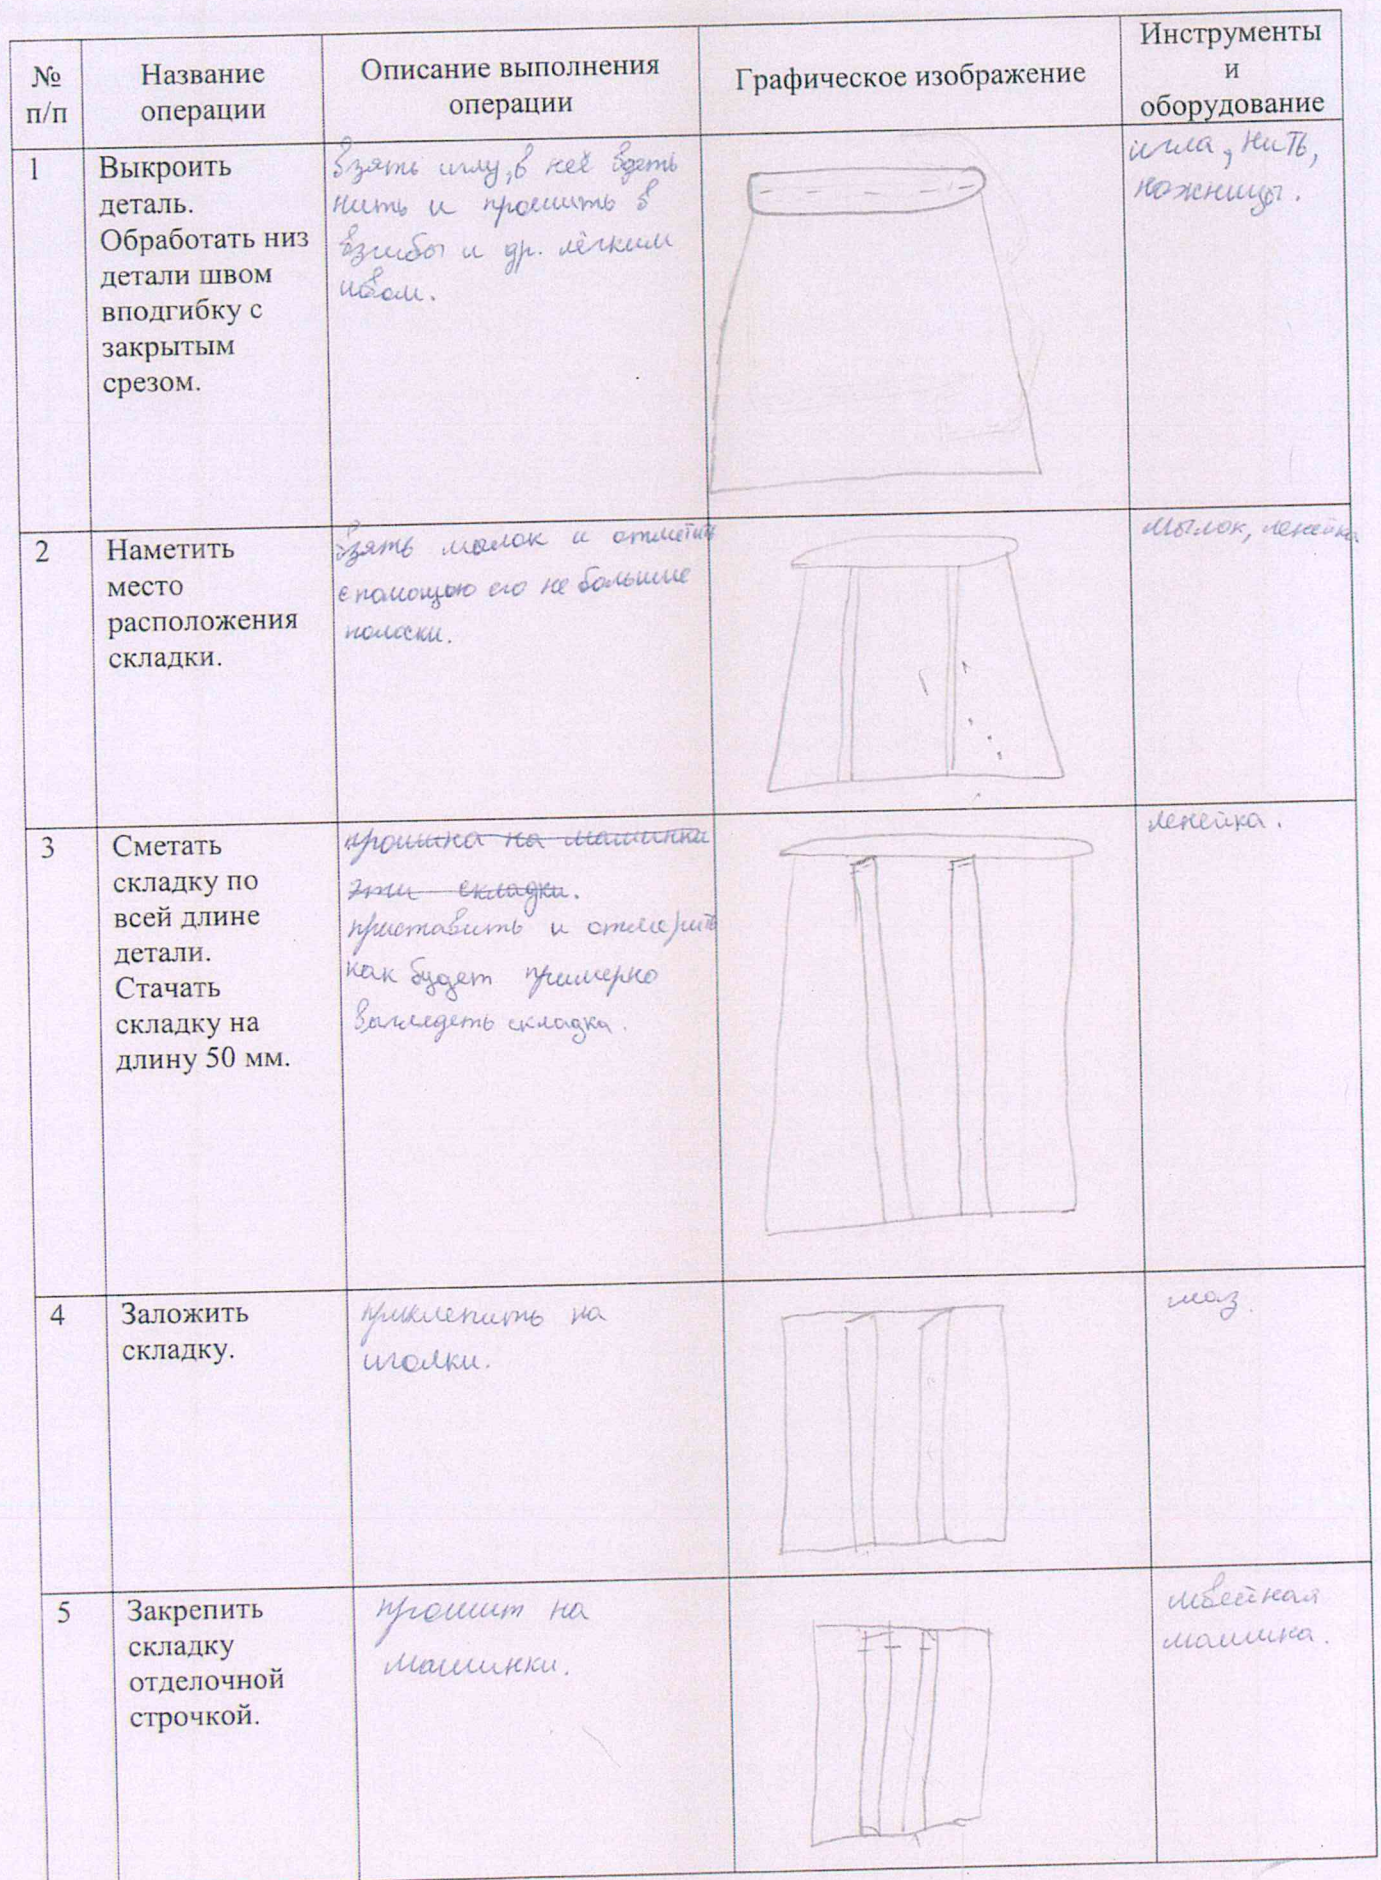 №
п/п
Название
операции
Описание выполнения
операции
Графическое изображение
Инструменты
и
оборудование
1
Выкроить
деталь.
Обработать низ
детали швом
вподгибку с
закрытым
срезом.
взять иглу, в неё вдеть
нить и прошить в
взгибы и др. лёгким
швом.
игла, нить,
ножницы.
2
Наметить
место
расположения
складки.
взять мылок и отметить
с помощью его не большие
полоски.
мылок, ленейка
3
Сметать
складку по
всей длине
детали.
Стачать
складку на
длину 50 мм.
прошика на машинки
эти складки.
приставить и отмерить
как будет примерно
выгледеть складка.
ленейка.
4
Заложить
складку.
приклепить на
иголки.
5
Закрепить
складку
отделочной
строчкой.
прошит на
машинки.
швейная
машинка.